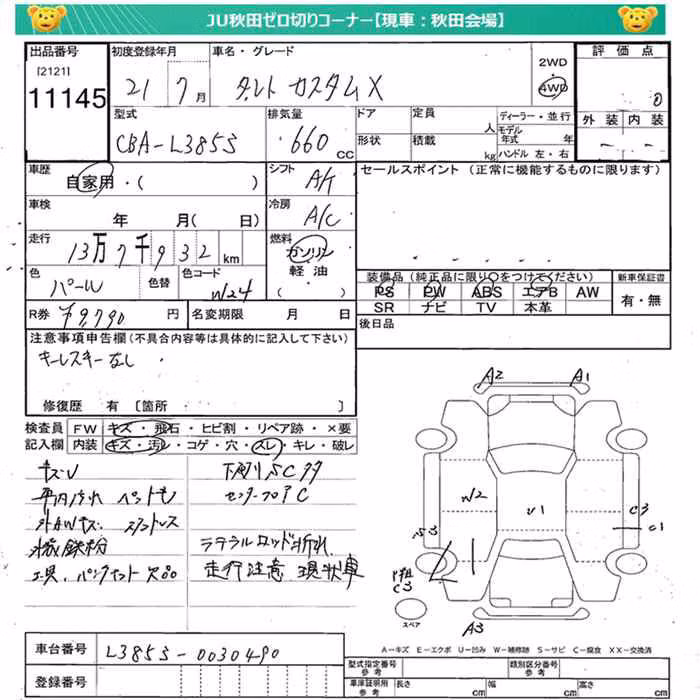 JU秋田ゼロ切りコーナー【現車：秋田会場】
出品番号 初度登録年月 車名・グレード 評価点
[2121] 2WD
11145 21 7月 タント カスタムX 4WD 0
型式 排気量 ドア 定員 ディーラー・並行 外装 内装
CBA-L385S 660 CC 人 モデル年式 年
形状 積載 kg ハンドル 左・右 - -
車歴 シフト セールスポイント (正常に機能するものに限ります)
自家用・( ) A/T
車検 冷房
年 月(日) A/C
走行 燃料
13万7千932km ガソリン
色 色替 色コード 軽油 装備品(純正品に限り○をつけてください) 新車保証書
パール W24 ( ) PS PW ABS エアB AW 有・無
SR ナビ TV 本革
R券 ¥9,790円 名変期限 月 日 後日品
注意事項申告欄(不具合内容等は具体的に記入して下さい)
キーレスキーなし
修復歴 有 [箇所 ]
検査員 FW キズ・飛石・ヒビ割・リペア跡・×要
記入欄 内装 キズ・汚レ・コゲ・穴・スレ・キレ・破レ
キズU 下廻りSCサ
センターフロアC
ラテラルロッド折れ
鉄粉 走行注意 現状車
工具、パンクキット欠品
A2 A1
W2 U1 C3
C1
C3
スペア
A3
A-キズ E-エクボ U-凹み W-補修跡 S-サビ C-腐食 XX-交換済
車台番号 L385S-0030490
型式指定番号 参考 類別区分番号 参考
登録番号 車庫証明用 参考 長さ cm 幅 cm 高さ cm